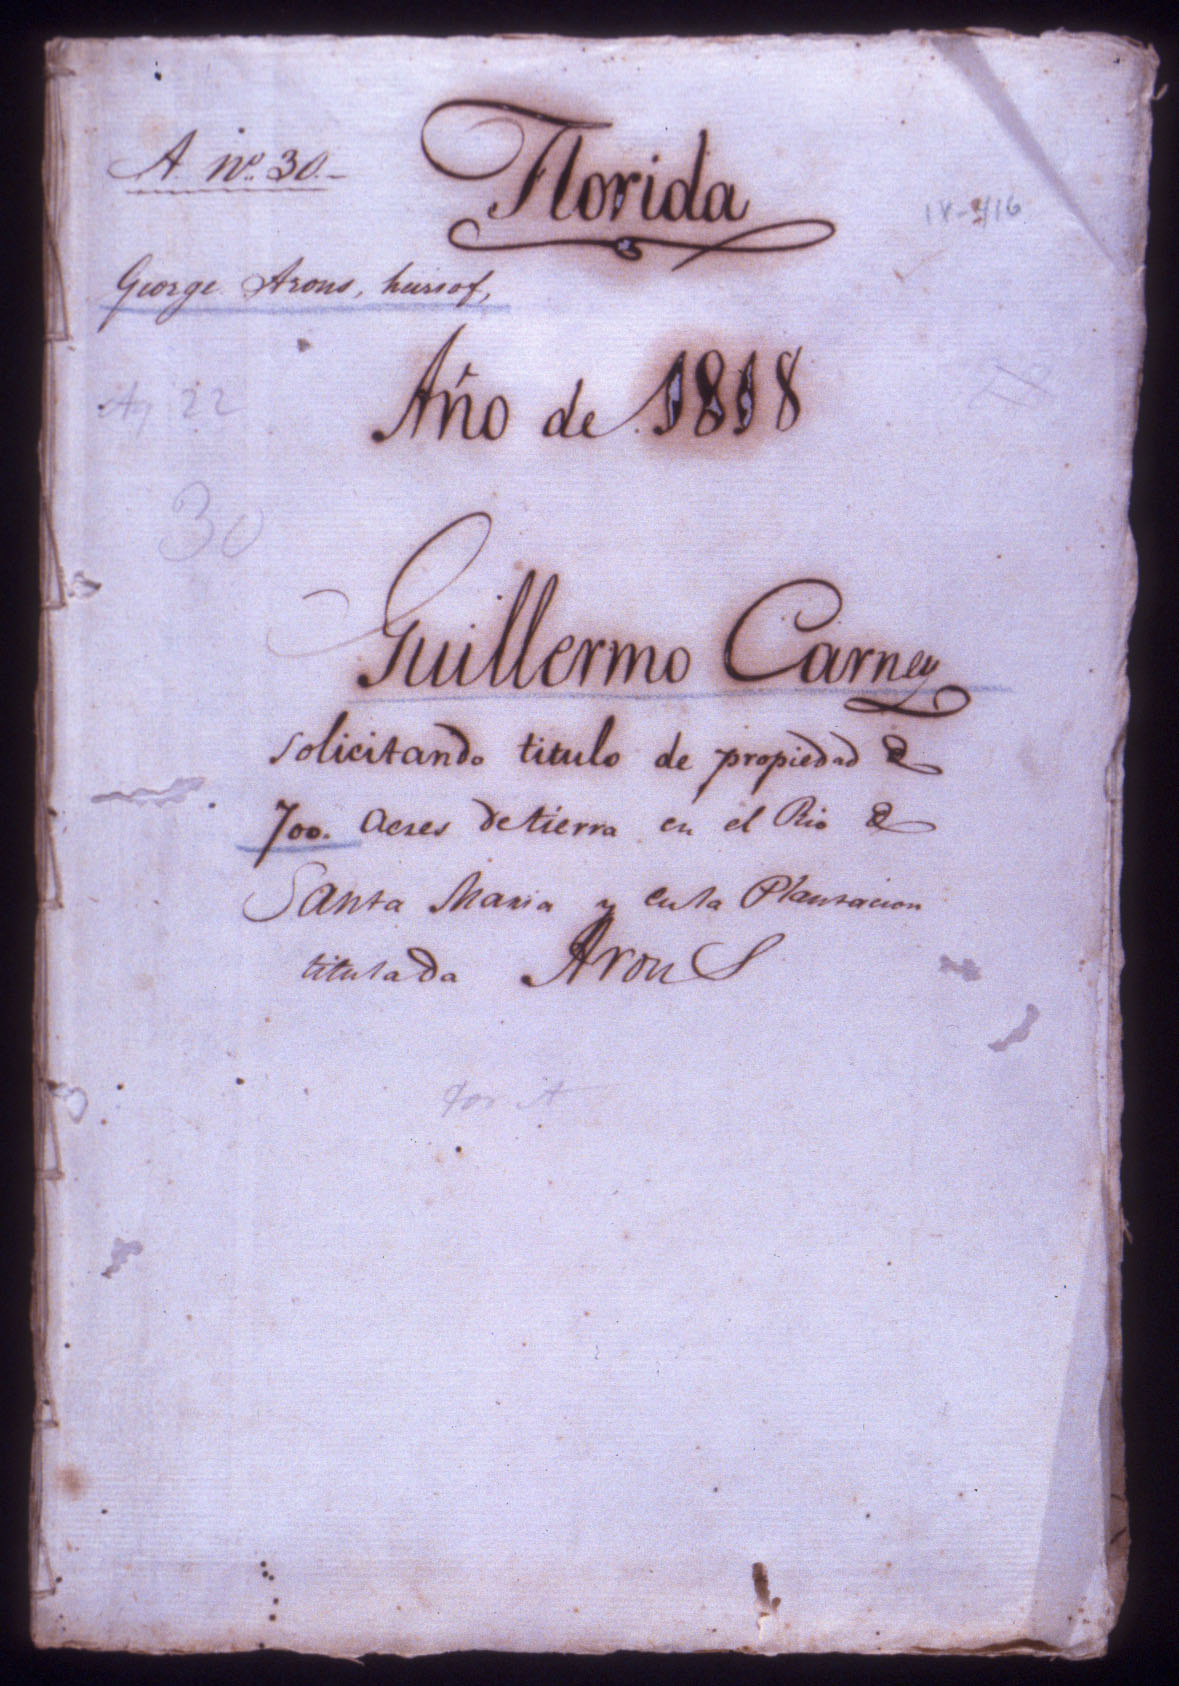 A. Nº. 30.-
Florida
IV-416
George Arons, heirs of,
Año de 1818
22
30
Guillermo Carney
solicitando titulo de propiedad de
700. acres de tierra en el Rio de
Santa Maria y en la Plantacion
titulada Arons